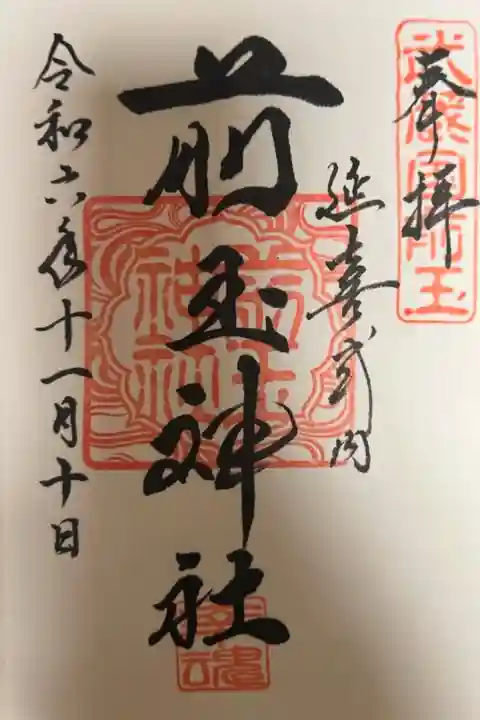 奉拝
武蔵國埼玉
延喜式内
前玉神社
前玉神社
令和六年十一月十日